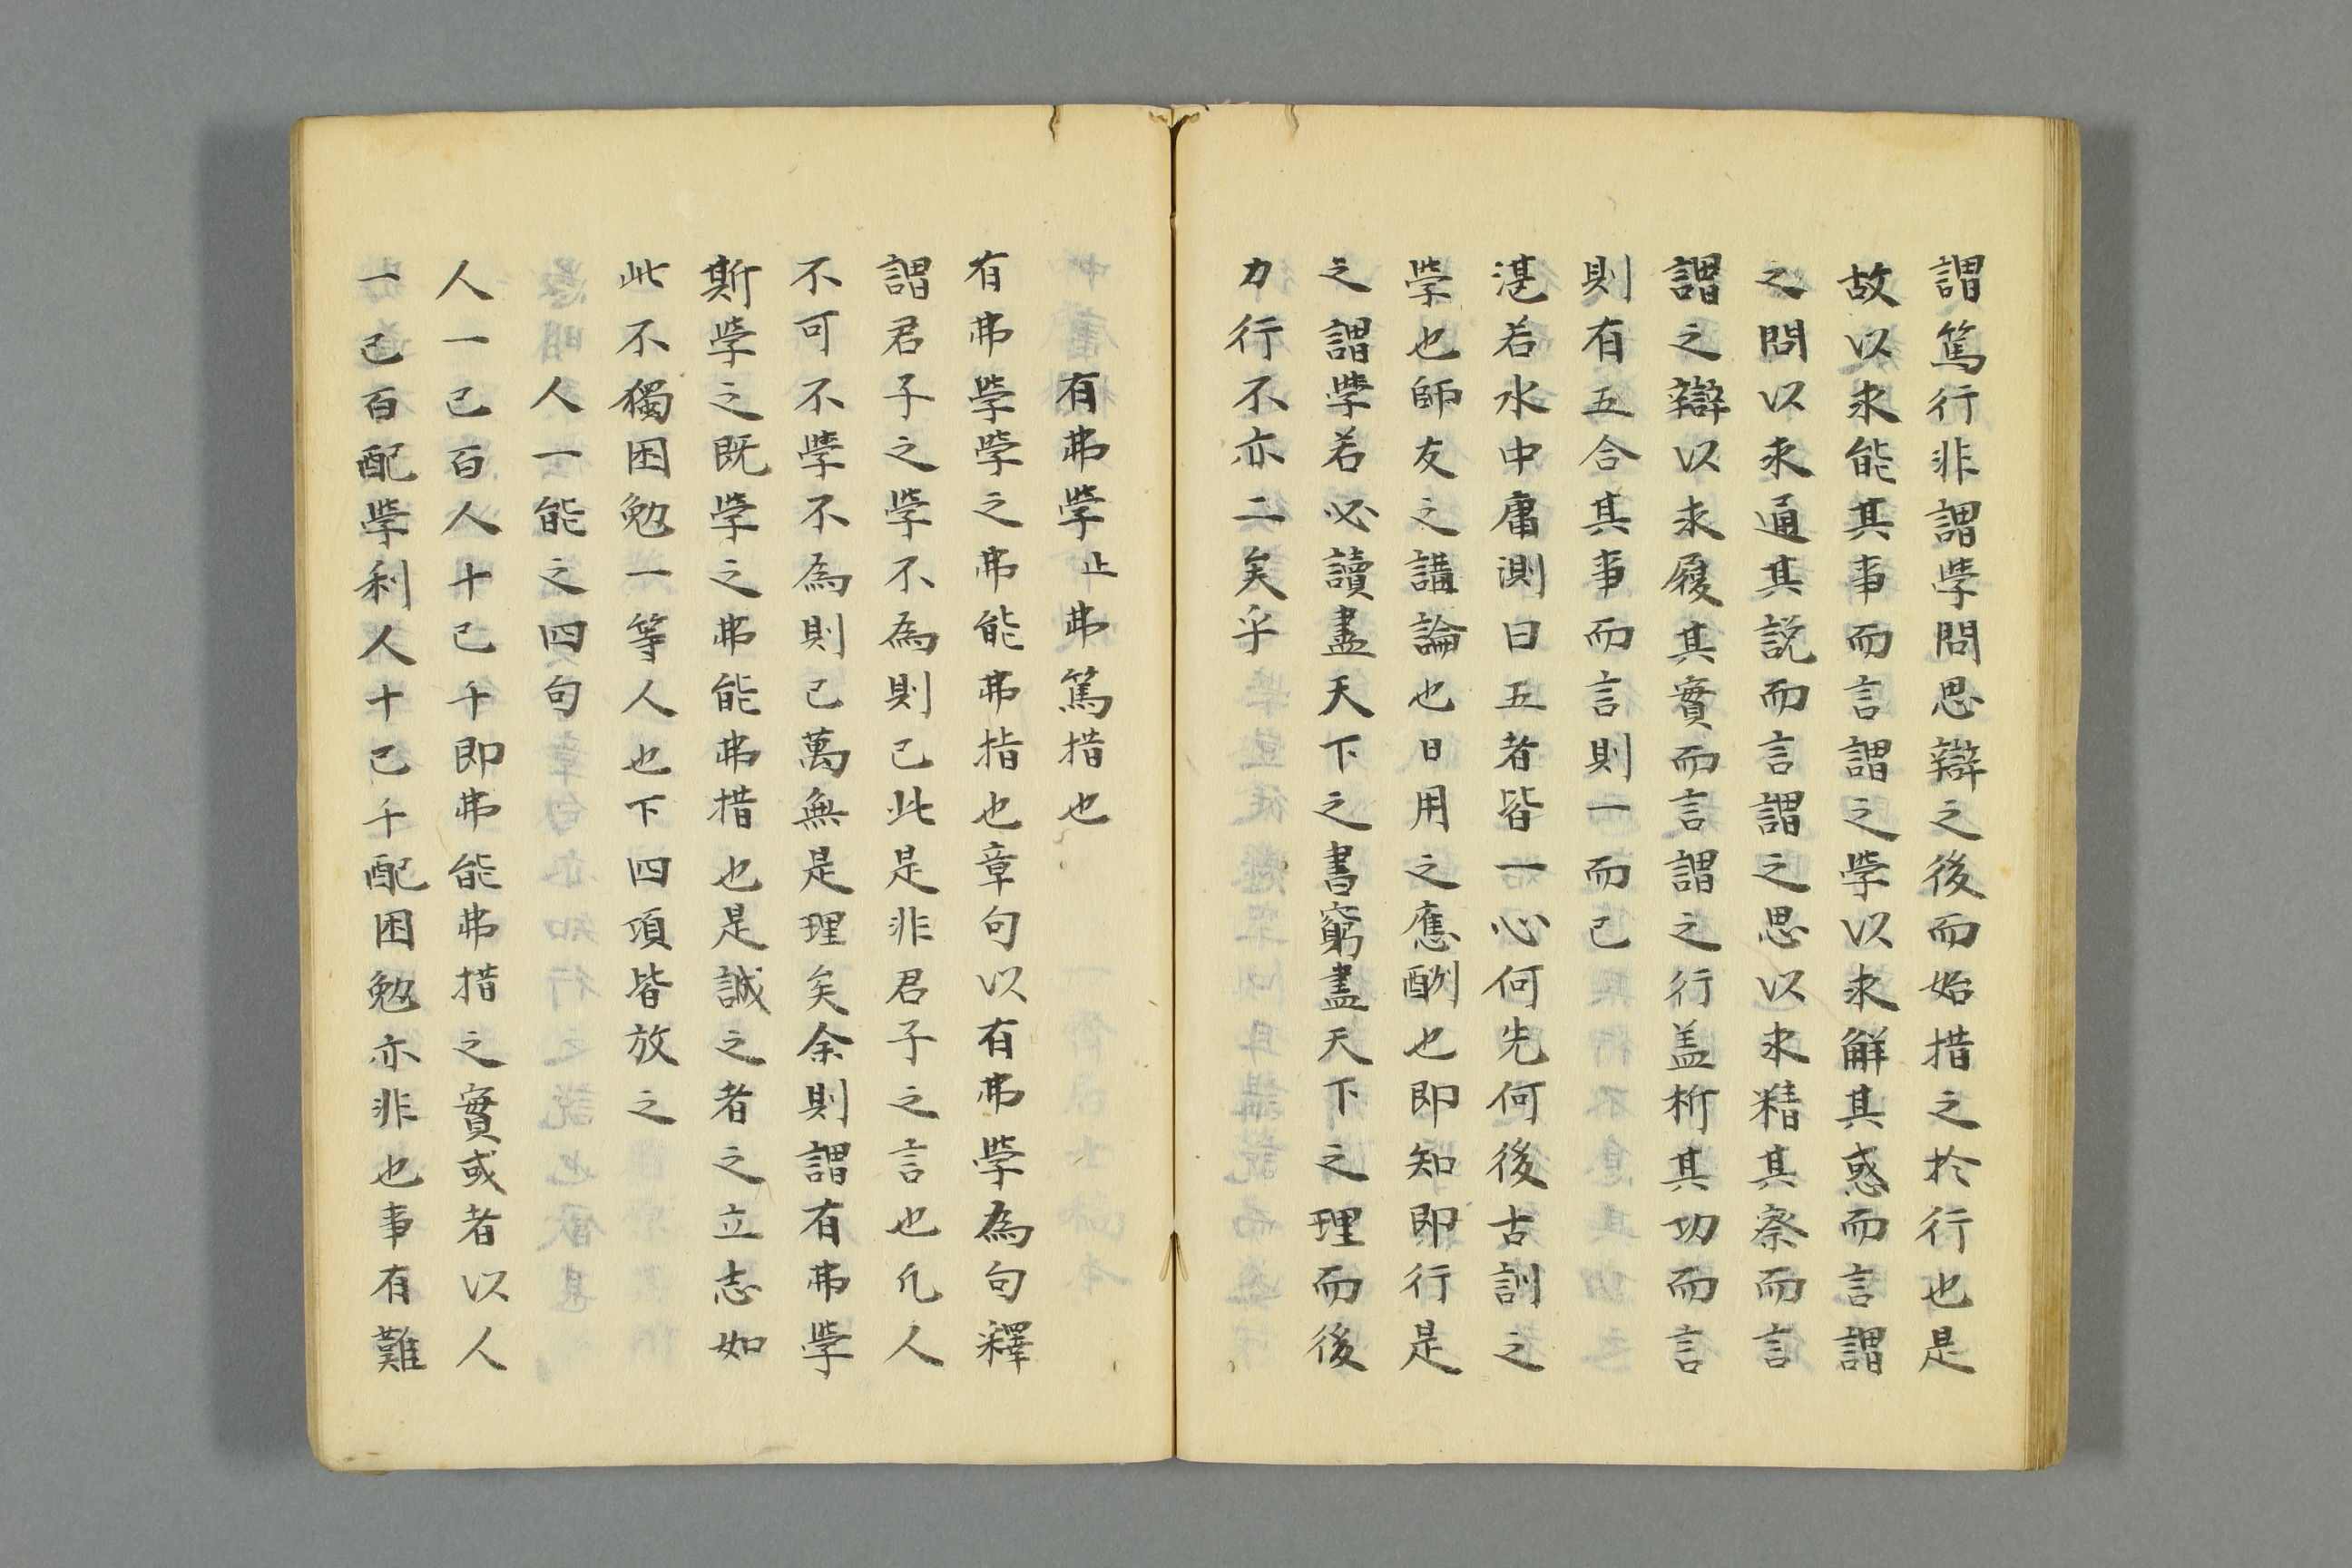 謂篤行非謂學問思辯之後而始措之於行也是
故以求能其事而言謂之學以求解其惑而言謂
之問以求通其説而言謂之思以求精其察而言
謂之辯以求履其實而言謂之行盖析其功而言
則有五合其事而言則一而已
湛若水中庸測曰五者皆一心何先何後古訓之
學也師友之講論也日用之應酬也即知即行是
之謂學若必讀盡天下之書窮盡天下之理而後
力行不亦二矣乎
有弗學止弗篤措也
有弗學學之弗能弗措也章句以有弗學為句釋
謂君子之學不為則已此是非君子之言也凡人
不可不學不為則已萬無是理矣余則謂有弗學
斯學之既學之弗能弗措也是誠之者之立志如
此不獨困勉一等人也下四項皆放之
人一能之四句
人一己百人十己千即弗能弗措之實或者以人
一己百配學利人十己千配困勉亦非也事有難